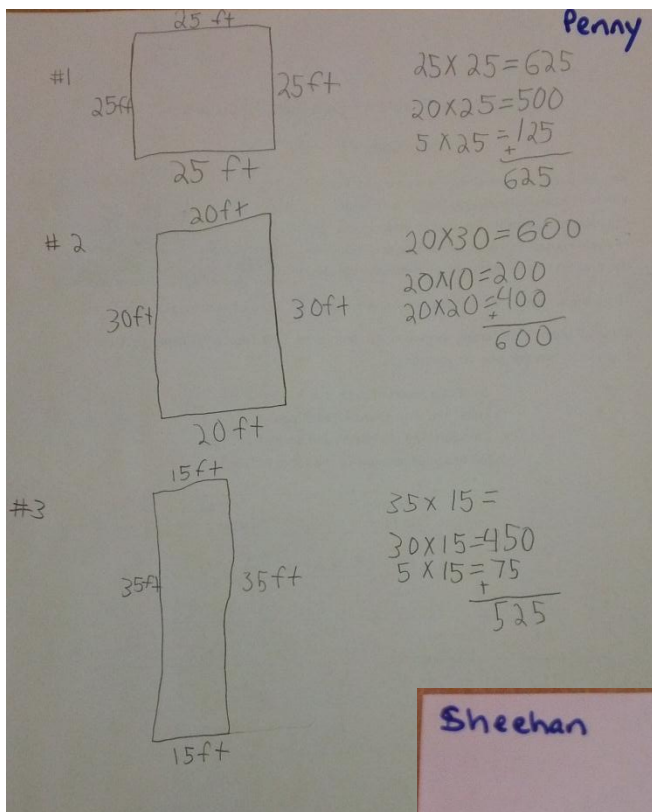 Penny
#1
25 ft
25ft
25ft
25 ft
25X 25=625
20X25=500
5 X25 =125
+
625
# 2
20ft
30ft
30ft
20 ft
20X30=600
20X10=200
20X20=400
+
600
#3
15ft
35ft
35ft
15ft
35x 15=
30X15=450
5 X15=75
+
525
Sheehan